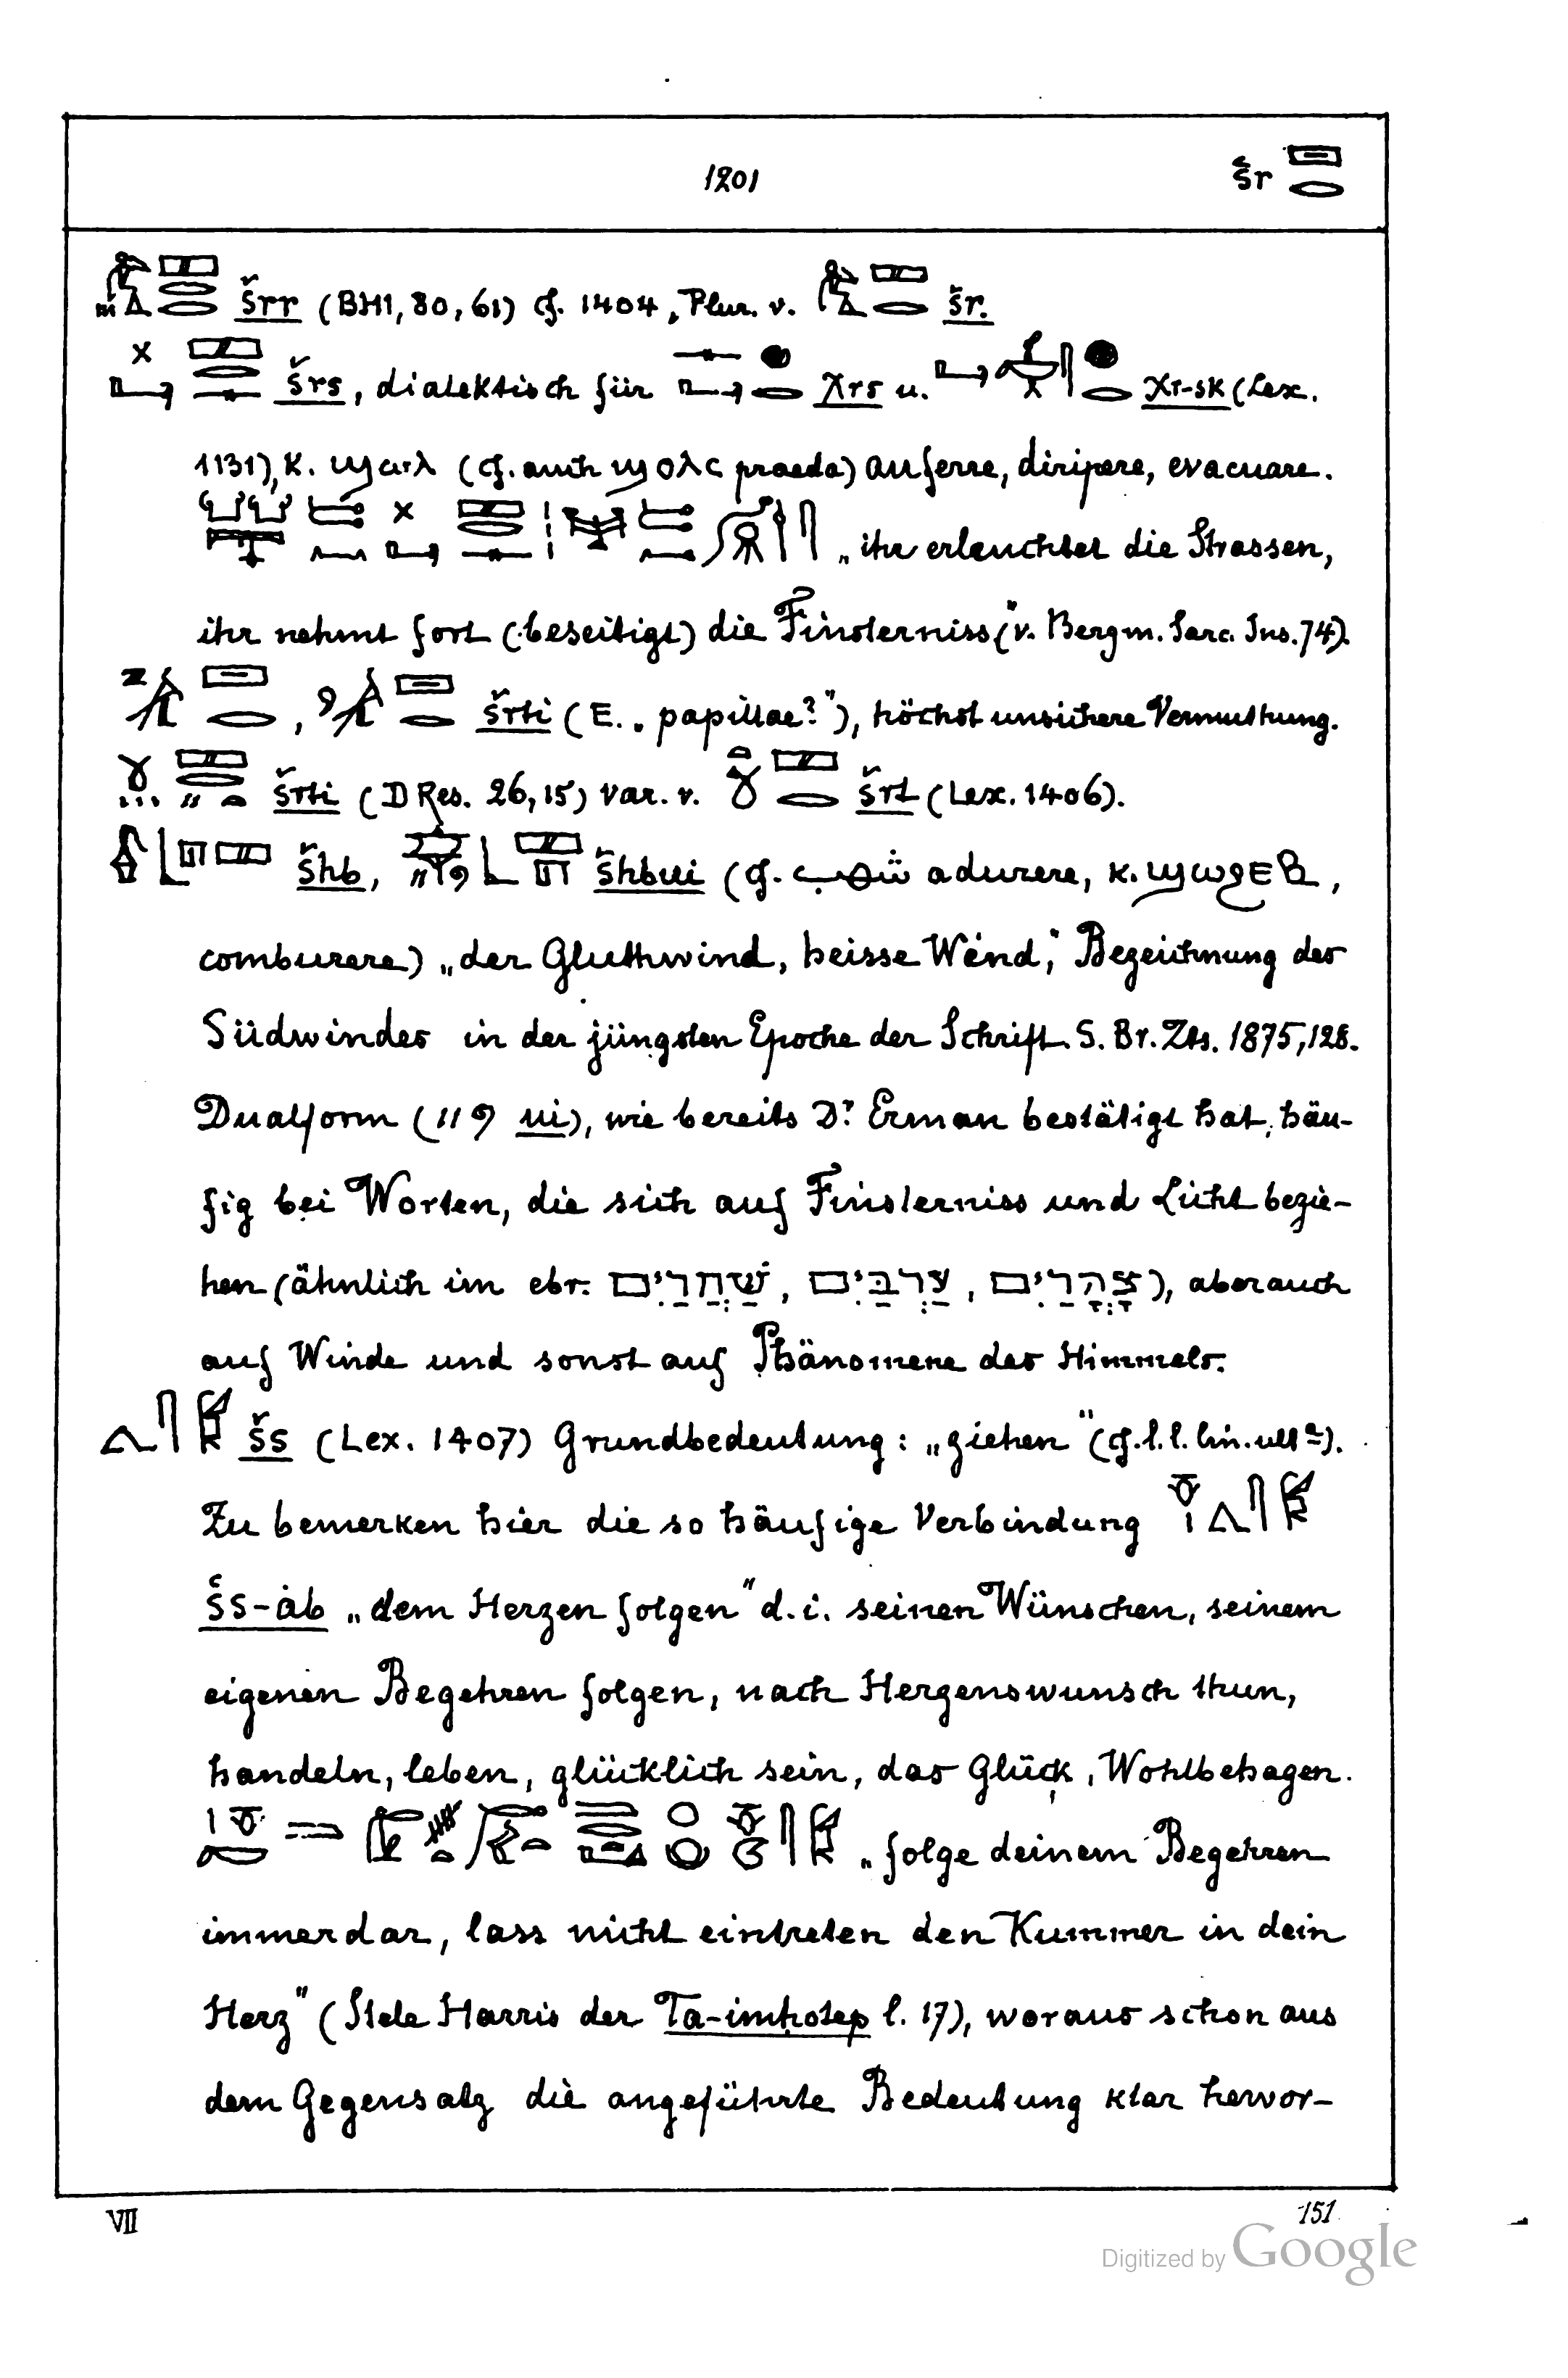 1201 šr
šrr (BH1, 80, 61) cf. 1404, Plur. v. šr.
šrs, dialektisch für χrs u. χr-sk (Lex.
1131), K. (cf. auch ϣολc praeda) auferre, diripere, evacuare.
„ihr erleuchtet die Strassen,
ihr nehmt fort (beseitigt) die Finsterniss" (v. Bergm. Sarc. Ins. 74).
, šrti (E. „papillae?"), höchst unsichere Vermuthung.
šrti (D Res. 26, 15) var. v. šrt (Lex. 1406).
šhb, šhbui (cf. شهب adurere, K. ϣωϩⲉⲃ,
comburere) „der Gluthwind, heisse Wind", Bezeichnung des
Südwindes in der jüngsten Epoche der Schrift. S. Br. Zts. 1875, 128.
Dualform (ui), wie bereits Dr. Erman bestätigt hat, häu-
fig bei Worten, die sich auf Finsterniss und Licht bezie-
hen (ähnlich im ebr. שַׁחֲרַיִם, עַרְבַּיִם, צָהֳרַיִם), aber auch
auf Winde und sonst auf Phänomene des Himmels.
šs (Lex. 1407) Grundbedeutung: „ziehen" (cf. l. l. lin. ult.).
Zu bemerken hier die so häufige Verbindung
šs-ȧb „dem Herzen folgen" d. i. seinen Wünschen, seinem
eigenen Begehren folgen, nach Herzenswunsch thun,
handeln, leben, glücklich sein, das Glück, Wohlbehagen.
„folge deinem Begehren
immerdar, lass nicht eintreten den Kummer in dein
Herz" (Stele Harris der Ta-imḥotep l. 17), woraus schon aus
dem Gegensatz die angeführte Bedeutung klar hervor-
VII 151
Digitized by Google